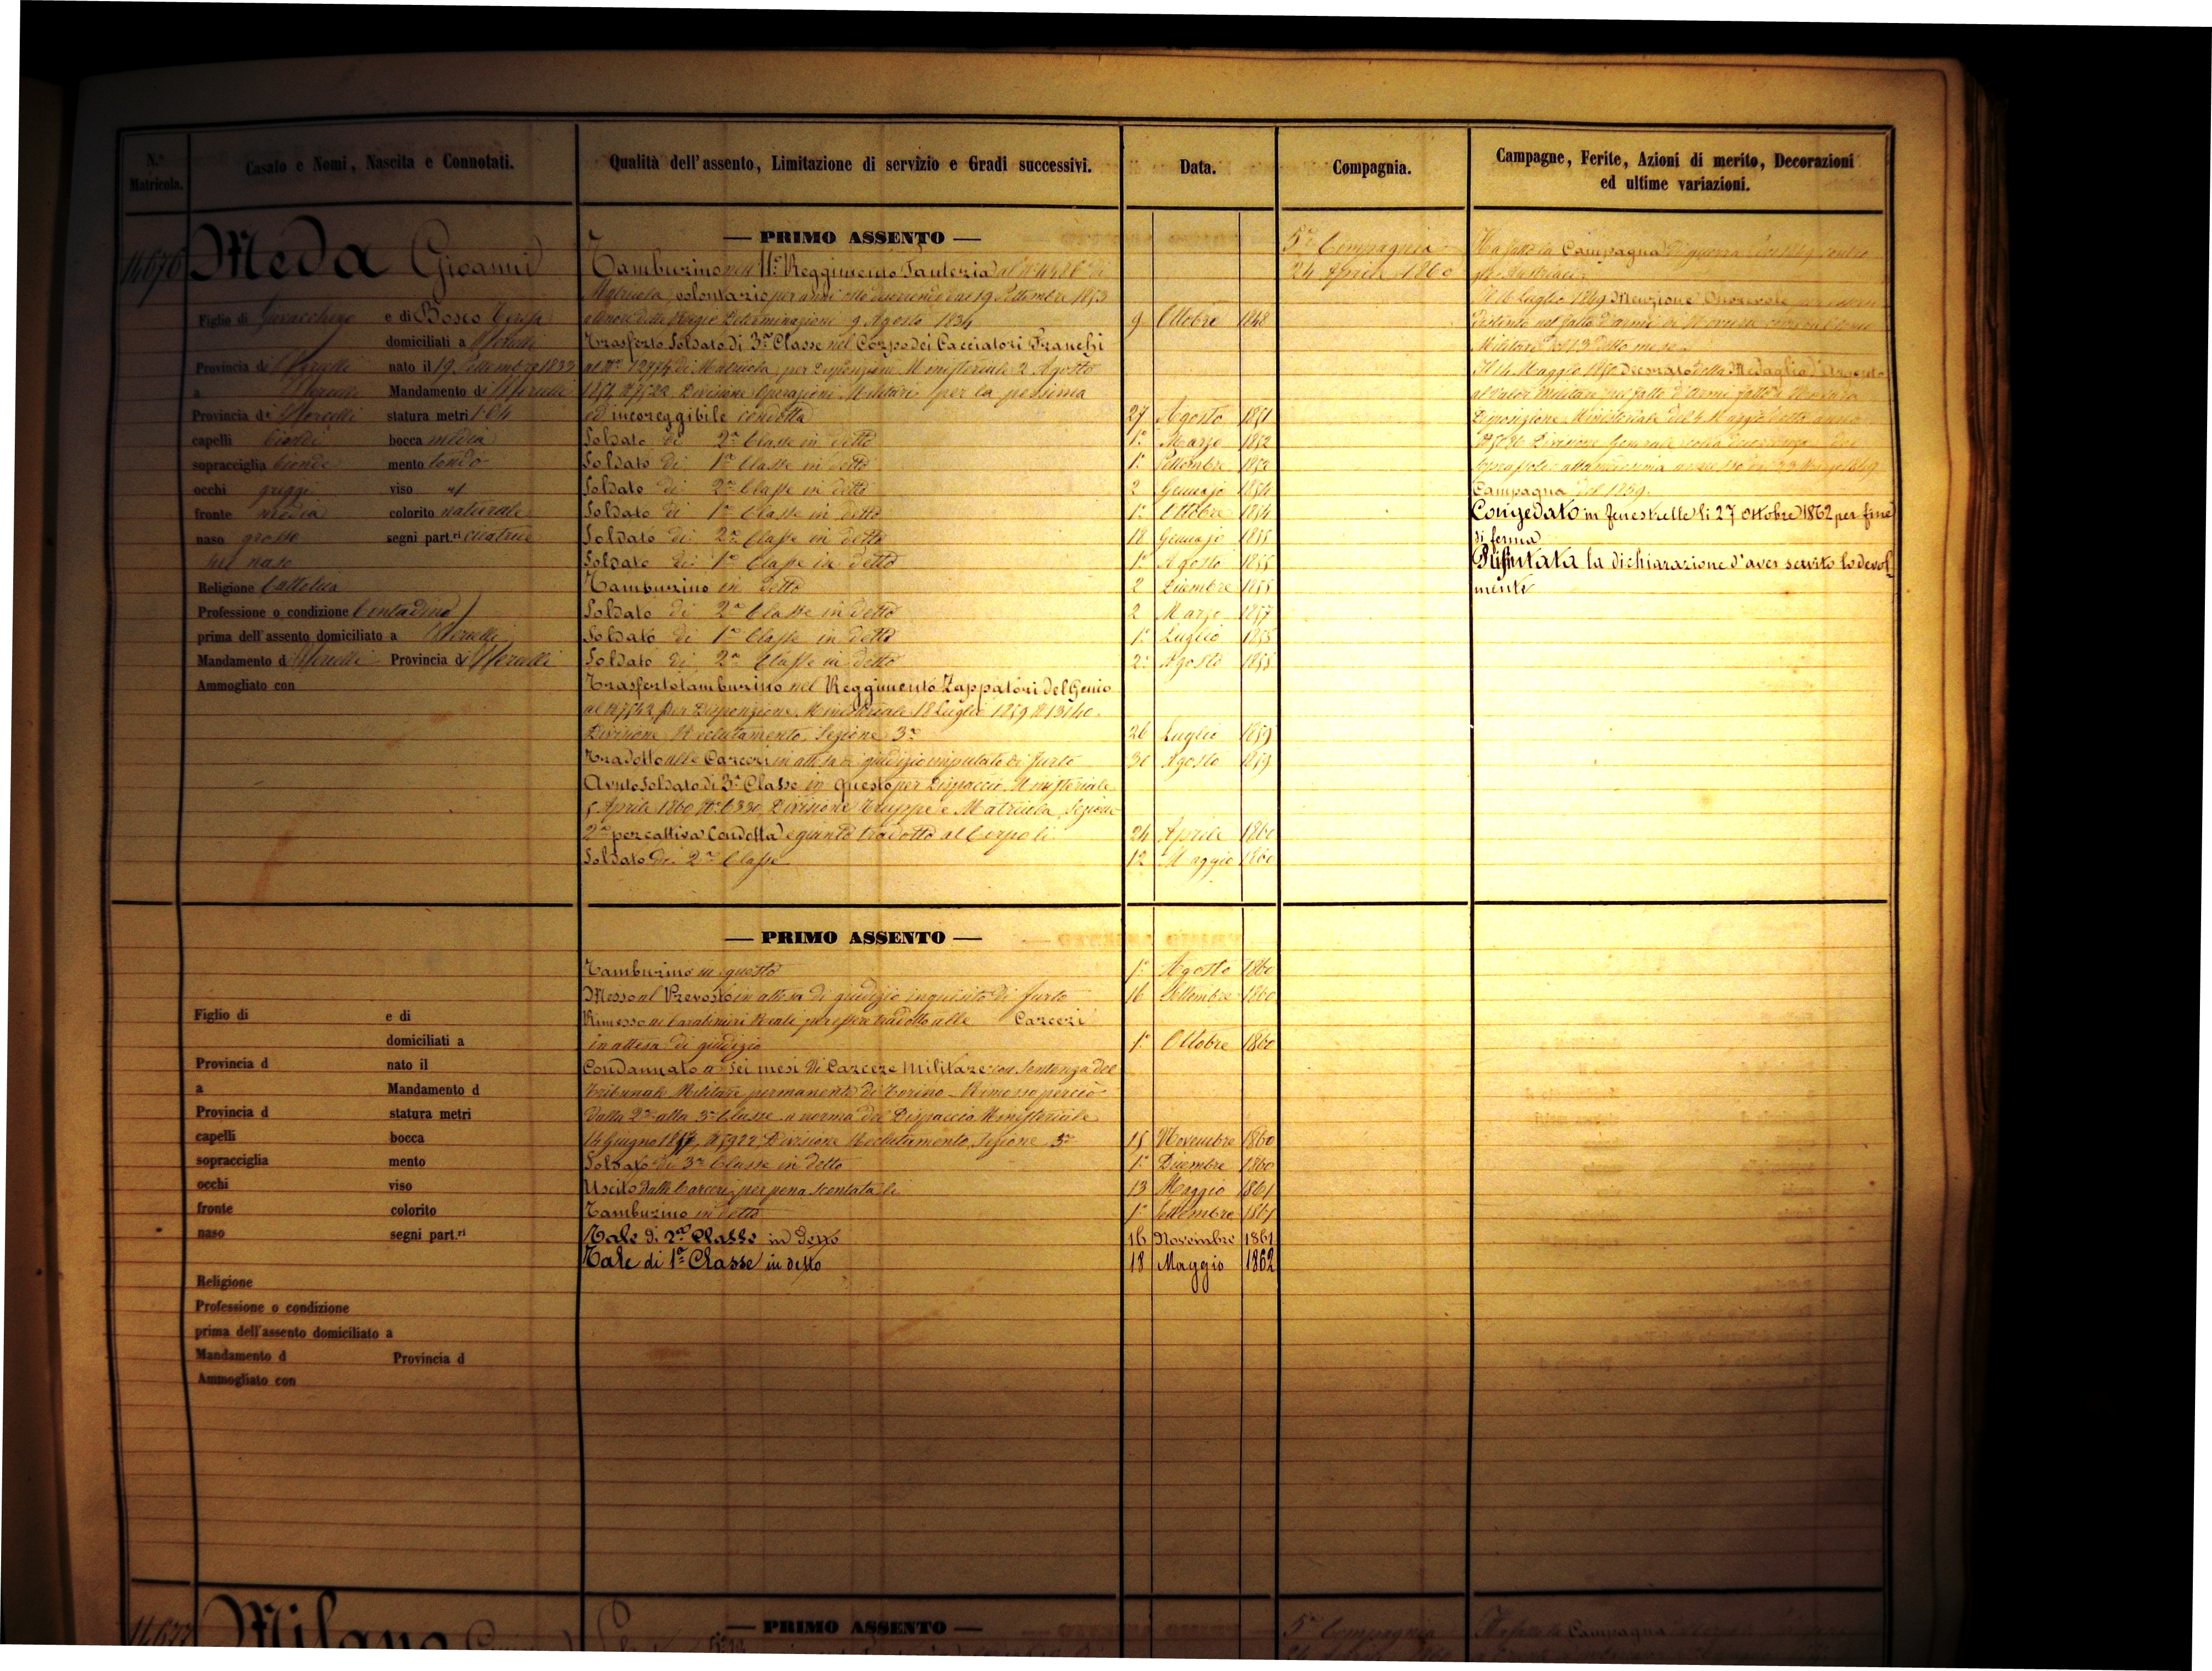 N.° Matricola.
Casato e Nomi, Nascita e Connotati.
Qualità dell'assento, Limitazione di servizio e Gradi successivi.
Data.
Compagnia.
Campagne, Ferite, Azioni di merito, Decorazioni
ed ultime variazioni.
14676
Meda Gioanni
Figlio di Gioacchino e di Bosco Teresa
domiciliati a Vercelli
Provincia di Vercelli nato il 19 Settembre 1833
a Vercelli Mandamento di Vercelli
Provincia di Vercelli statura metri 1.64
capelli biondi bocca media
sopracciglia bionde mento tondo
occhi griggi viso
fronte media colorito naturale
naso grosso segni part.ri cicatrice
sul naso
Religione Cattolica
Professione o condizione Contadino
prima dell'assento domiciliato a Vercelli
Mandamento di Vercelli Provincia di Vercelli
Ammogliato con
— PRIMO ASSENTO —
Tamburino nell' 11.° Reggimento Fanteria al N° 4486 di
Matricola, volontario per anni otto decorrendi dal 19 Settembre 1853
a tenore delle Regie Determinazioni 9 Agosto 1834 9 Ottobre 1848
Trasferto Soldato di 3.a Classe nel Corpo dei Cacciatori Franchi
al N.° 12474 di Matricola, per Disposizione Ministeriale 2 Agosto
1851 N° 7522 Divisione Operazioni Militari per la pessima
ed incoreggibile condotta 27 Agosto 1851
Soldato di 2.a Classe in detto 1.° Marzo 1852
Soldato di 1.a Classe in detto 1.° Settembre 1852
Soldato di 2.a Classe in detto 2 Gennajo 1854
Soldato di 1.a Classe in detto 1.° Ottobre 1854
Soldato di 2.a Classe in detto 18 Gennajo 1855
Soldato di 1.a Classe in detto 1.° Agosto 1855
Tamburino in detto 2 Dicembre 1855
Soldato di 2.a Classe in detto 2 Marzo 1857
Soldato di 1.a Classe in detto 1.° Luglio 1858
Soldato di 2.a Classe in detto 2 Agosto 1858
Trasferto tamburino nel Reggimento Zappatori del Genio
al N° 7542 per Disposizione Ministeriale 18 Luglio 1859 N° 13140
Divisione Reclutamento Sezione 3.a 26 Luglio 1859
Tradotto alle Carceri in attesa di giudizio imputato di furto 30 Agosto 1859
Avuto Soldato di 3.a Classe in questo per Dispaccio Ministeriale
5 Aprile 1860 N.° 6330 Divisione Truppe e Matricola, Sezione
2.a per cattiva Condotta e giunto tradotto al Corpo li 24 Aprile 1860
Soldato di 2.a Classe 12 Maggio 1860
5.a Compagnia
24 Aprile 1860
Ha fatto la Campagna di guerra del 1849 contro
gli Austriaci
Il 16 Luglio 1849 Menzione Onorevole
distinto nel fatto d'armi di Novara
Militare del 13 detto mese
Il 14 Maggio 1850 Decorato della Medaglia d'Argento
al Valor Militare nel fatto d'armi fatto a Novara
Disposizione Ministeriale del 4 Maggio detto anno
Divisione Generale colla decorrenza del
soprassoldo alla medesima annesso dal 23 Marzo 1849
Campagna del 1859.
Congedato in Fenestrelle li 27 Ottobre 1862 per fine
di ferma
Rifiutata la dichiarazione d'aver servito lodevol-
mente
— PRIMO ASSENTO —
Figlio di e di
domiciliati a
Provincia d nato il
a Mandamento d
Provincia d statura metri
capelli bocca
sopracciglia mento
occhi viso
fronte colorito
naso segni part.ri
Religione
Professione o condizione
prima dell'assento domiciliato a
Mandamento d Provincia d
Ammogliato con
Tamburino in questo 1.° Agosto 1860
Messo al Prevosto in attesa di giudizio inquisito di furto 16 Settembre 1860
Rimesso ai Carabinieri Reali per essere tradotto alle Carceri
in attesa di giudizio 1.° Ottobre 1860
Condannato a sei mesi di Carcere Militare con Sentenza del
Tribunale Militare permanente di Torino - Rimosso perciò
dalla 2.a alla 3.a Classe a norma del Dispaccio Ministeriale
14 Giugno 1857, N° 5922 Divisione Reclutamento, Sezione 3.a 15 Novembre 1860
Soldato di 3.a Classe in detto 1.° Dicembre 1860
Uscito dalle Carceri per pena scontata li 13 Maggio 1861
Tamburino in detto 1.° Settembre 1861
Tale di 2.a Classe in detto 16 Novembre 1861
Tale di 1.a Classe in detto 18 Maggio 1862
14677
Milano
— PRIMO ASSENTO —
5.a Compagnia
Ha fatto la Campagna